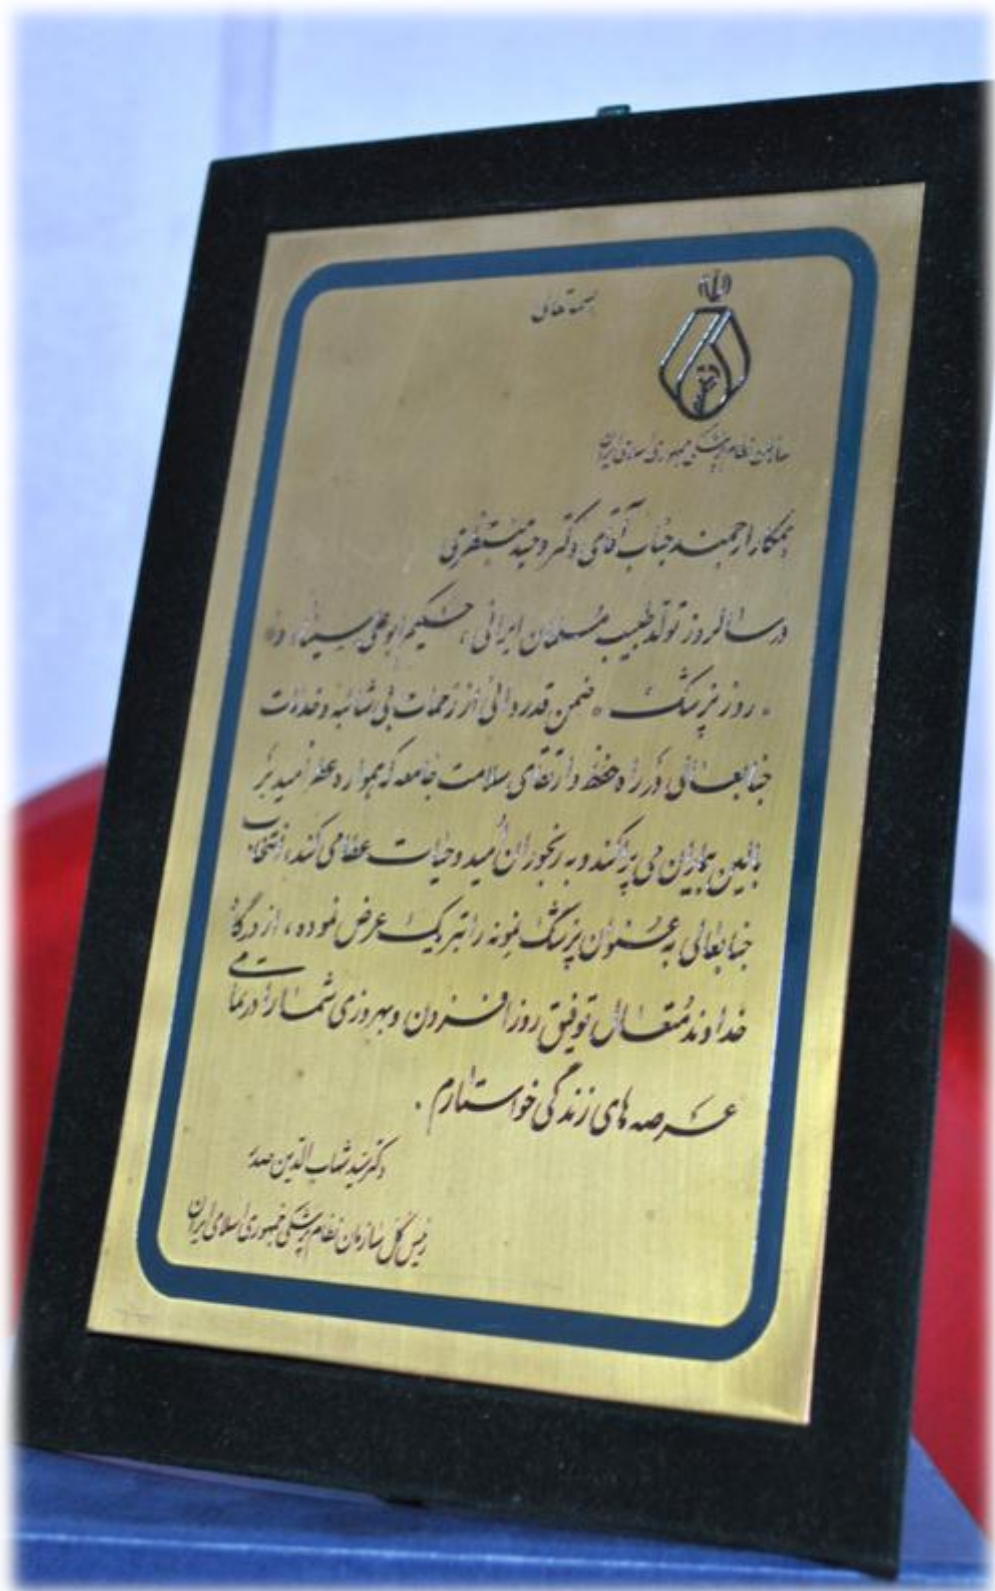 بسمه تعالی
سازمان نظام پزشکی جمهوری اسلامی ایران
همکار ارجمند جناب آقای دکتر وحید منتظری
در سالروز تولد طبیب مسلمان ایرانی، حکیم ابوعلی سینا، و
« روز پزشک » ضمن قدردانی از زحمات بی شائبه و خدمات
جنابعالی در راه حفظ و ارتقای سلامت جامعه که همواره عطر امید بر
بالین بیماران می پراکند و به رنجوران اُمید و حیات عطا می کند، انتخاب
جنابعالی به عنوان پزشک نمونه را تبریک عرض نموده، از درگاه
خداوند مُتعال توفیق روزافزون و بهروزی شما را در تمامی
عرصه های زندگی خواستارم .
دکتر سید شهاب الدین صدر
رئیس کل سازمان نظام پزشکی جمهوری اسلامی ایران